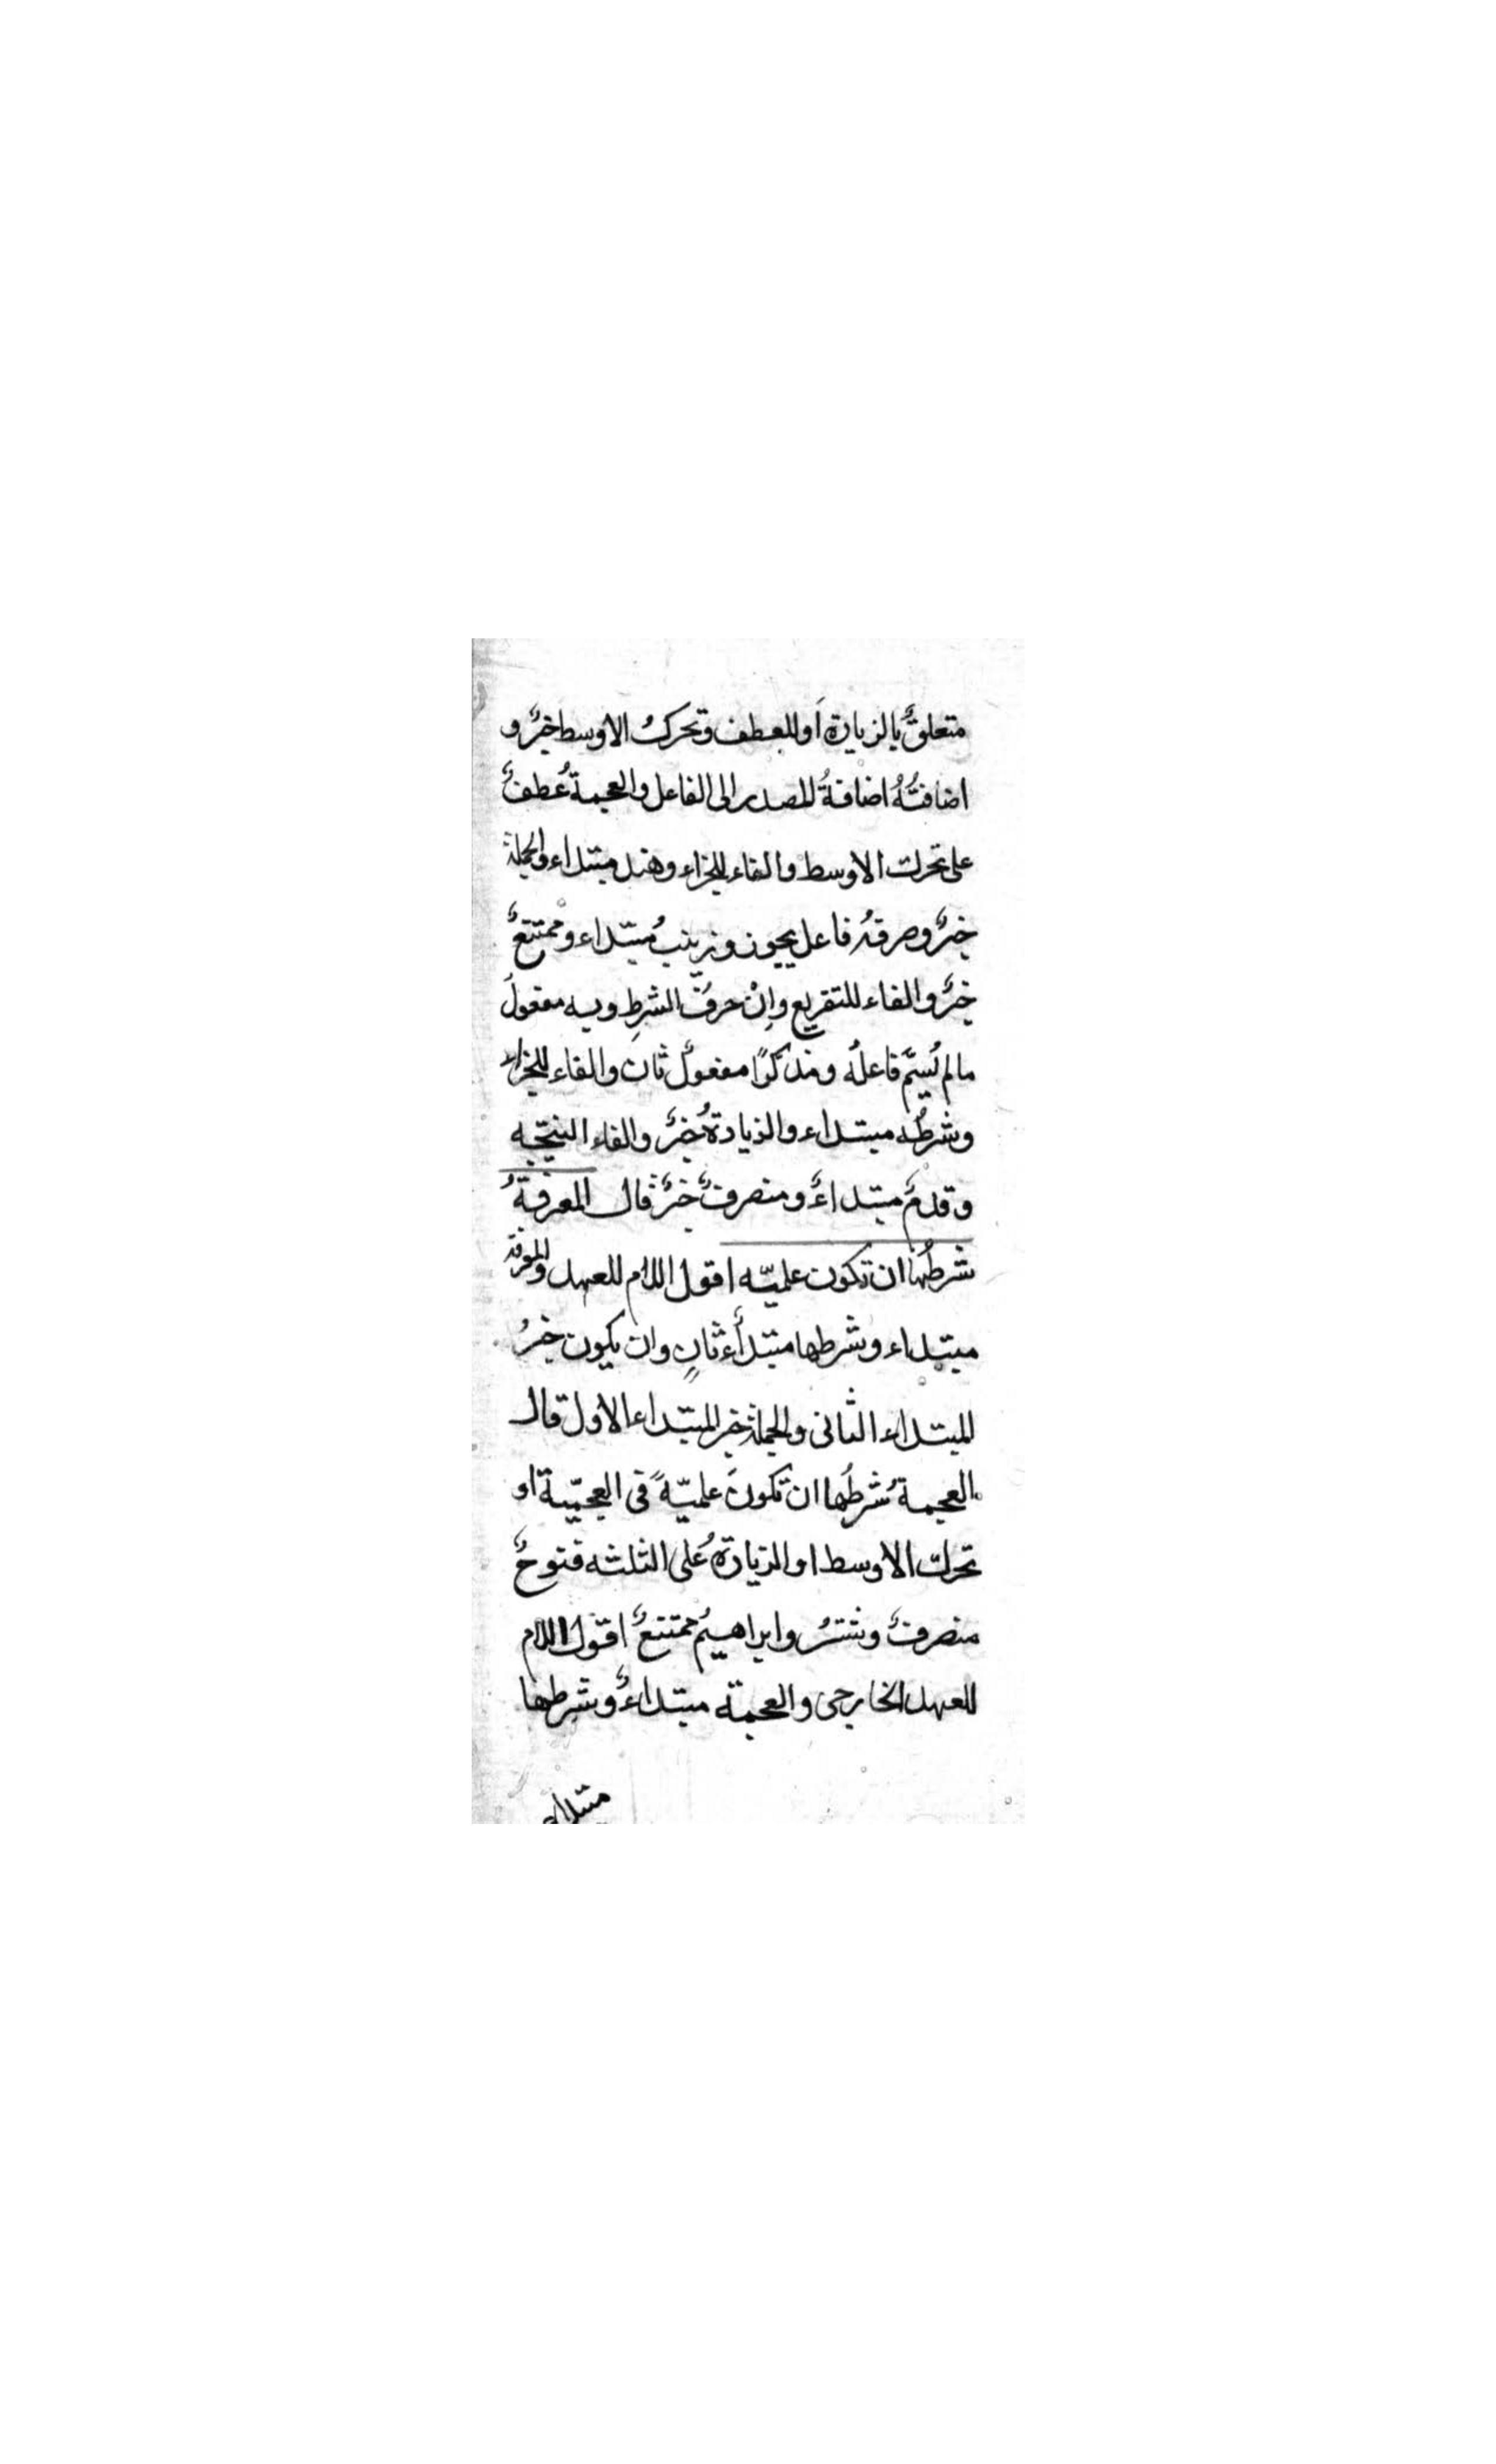 متعلقٌ بالزيادة اَو للعطف وتحركُ الاوسط خبرٌ و
اضافتُهُ اضافةُ المصدر الى الفاعل والعجمةُ عُطفٌ
على تحرك الاوسط والفاء للجزاء وهند مبتداء والجملة
خبرٌ وصرفهُ فاعل يجوز وزينبُ مُبتداء وممتنعٌ
خبرٌ والفاء للتفريع واِنْ حرفُ الشرطِ وبه مفعولُ
مالم يُسَمَّ فاعلُه ومذكّرًا مفعولٌ ثان والفاء للجزاء
وشرطُه مبتداء والذيادةُ خبرٌ والفاء النتيجه
وقدمٌ مبتداءٌ ومنصرفٌ خبرٌ قال المعرفةُ
شرطُها ان تكون علميّه اقول اللام للعهد والمعرفة
مبتداء وشرطها مبتدأء ثانٍ وان يكون خبرُ
المبتداء الثانى والجملة خبر المبتداء الاول قال
العجمةُ شرطُها ان تكونَ علميّةً فى العجميّة او
تحرك الاوسط او الزيادةُ على الثلثه فنوحٌ
منصرفٌ وشترُ وابراهيمُ ممتنعٌ اقول اللام
للعهد الخارجى والعجمة مبتداءٌ وشرطها
مبتداء